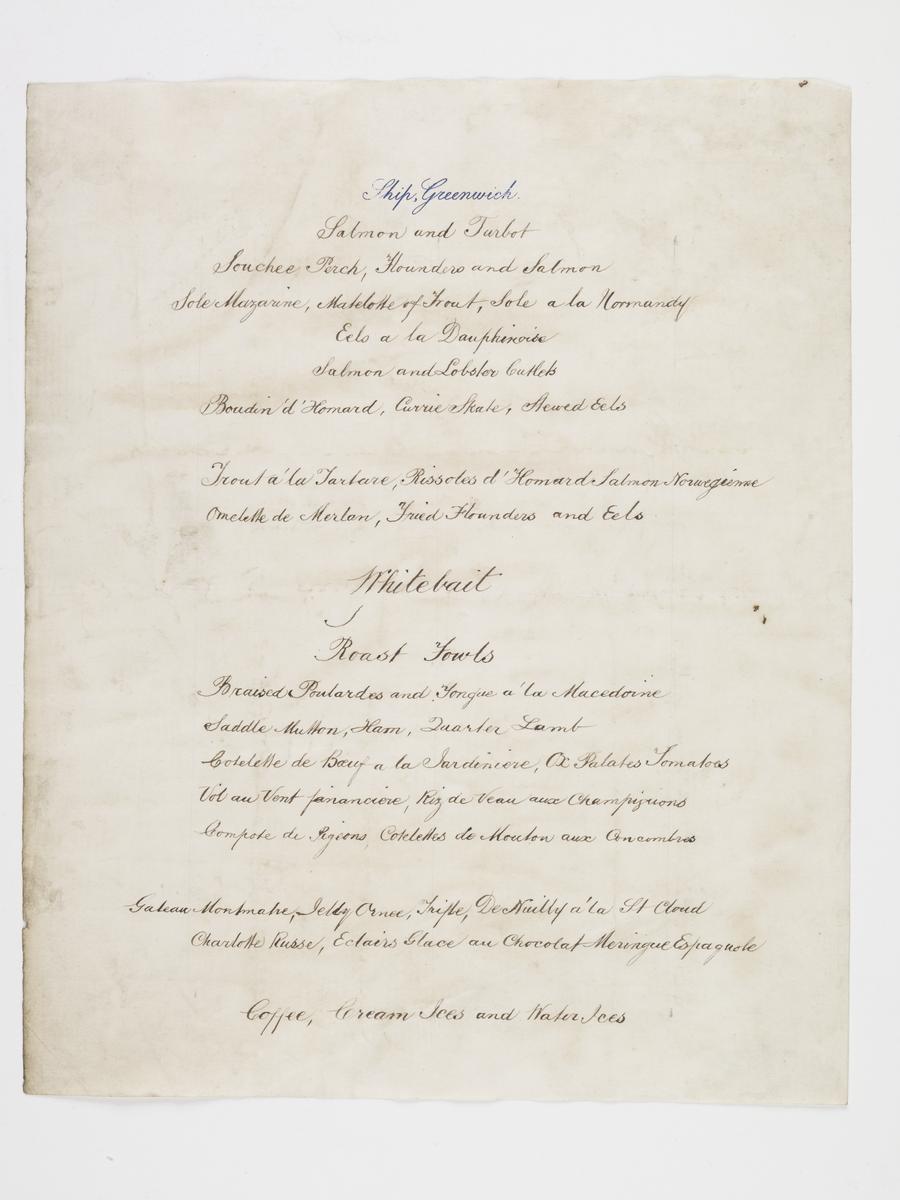 Ship, Greenwich.
Salmon and Turbot
Souchee Perch, Flounders and Salmon
Sole Mazarine, Matelotte of Trout, Sole a la Normandy
Eels a la Dauphinoise
Salmon and Lobster Cutlets
Boudin d'Homard, Currie Skate, Stewed Eels
Trout á la Tartare, Rissoles d'Homard Salmon Norwegienne
Omelette de Merlan, Fried Flounders and Eels
Whitebait
Roast Fowls
Braised Poulardes and Tongue á la Macedoine
Saddle Mutton, Ham, Quarter Lamb
Cotelette de Bœuf a la Jardiniere, Ox Palates Tomatoes
Vol au Vent financiere, Riz de Veau aux Champignons
Compote de Pigeons, Cotelettes de Mouton aux Concombres
Gateau Montmatre, Jelly Ornee, Trifle, De Nuilly á la St Cloud
Charlotte Russe, Eclairs Glace au Chocolat Meringue Espagnole
Coffee, Cream Ices and Water Ices